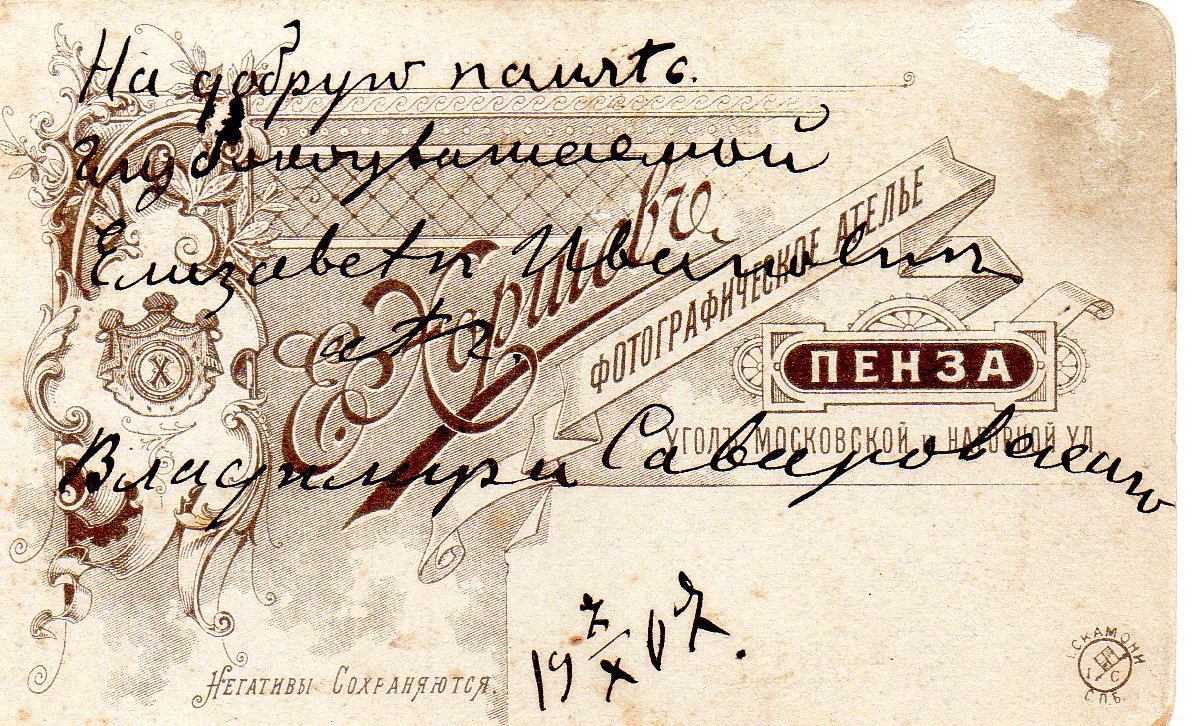 На добрую память.
глубокоуважаемой
Елизавете Ивановне
от
Владимира
19 7/X 07.
Е. Коршовъ
ФОТОГРАФИЧЕСКОЕ АТЕЛЬЕ
ПЕНЗА
УГОЛЪ МОСКОВСКОЙ и НАГОРНОЙ УЛ
НЕГАТИВЫ СОХРАНЯЮТСЯ.
I. СКАМОНИ
С.П.Б.